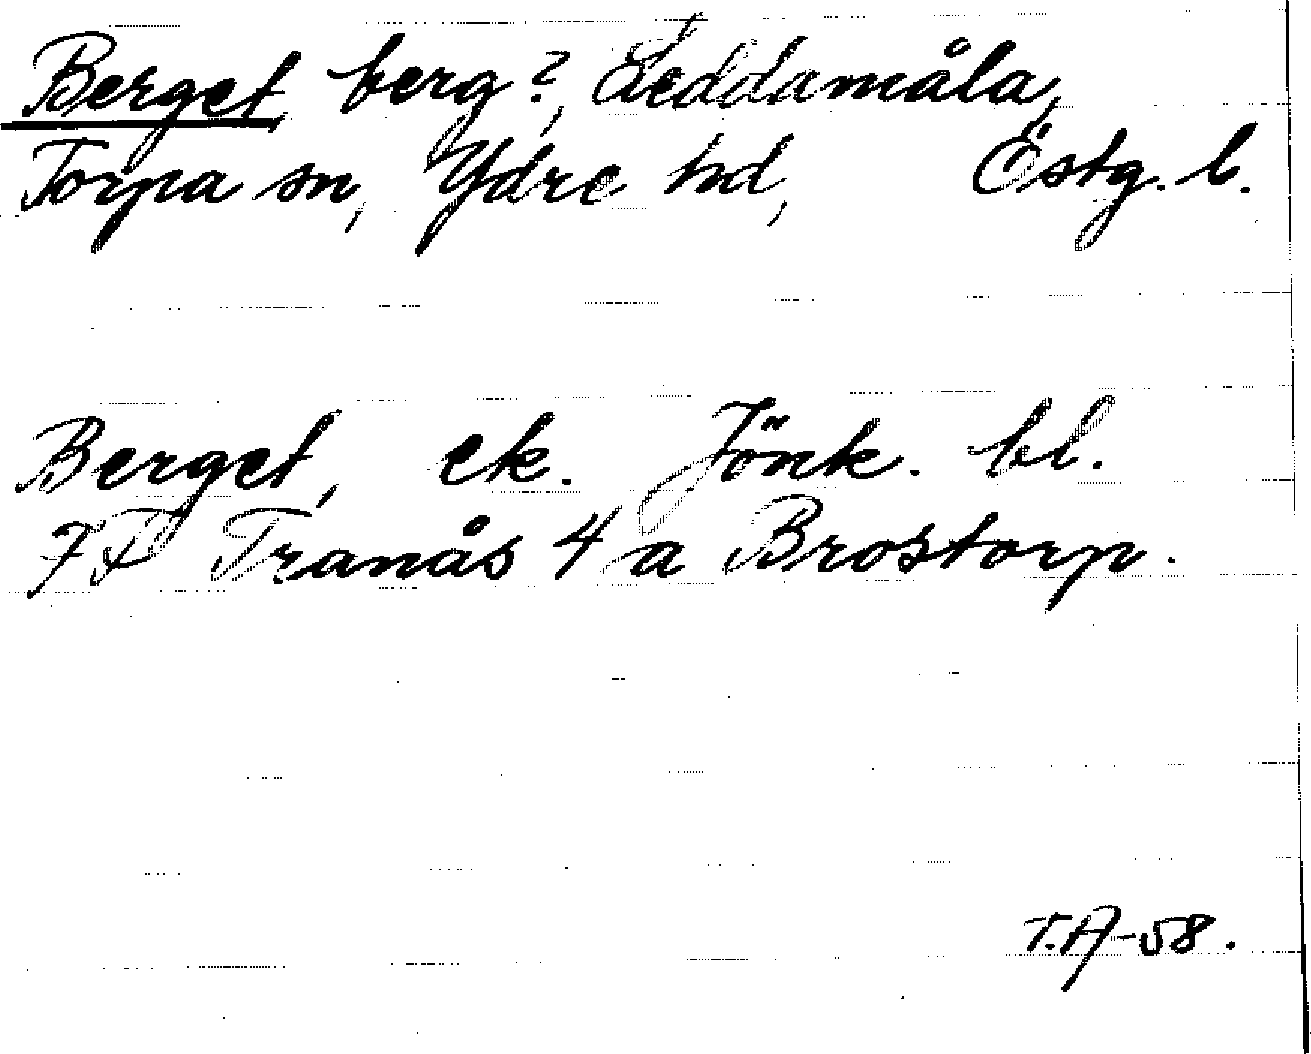 Berget, berg?, Leddamåla,
Torpa sn, Ydre hd, Östg. l.
Berget, ek. Jönk. bl.
7F Tranås 4 a Brostorp.
T.A-58.